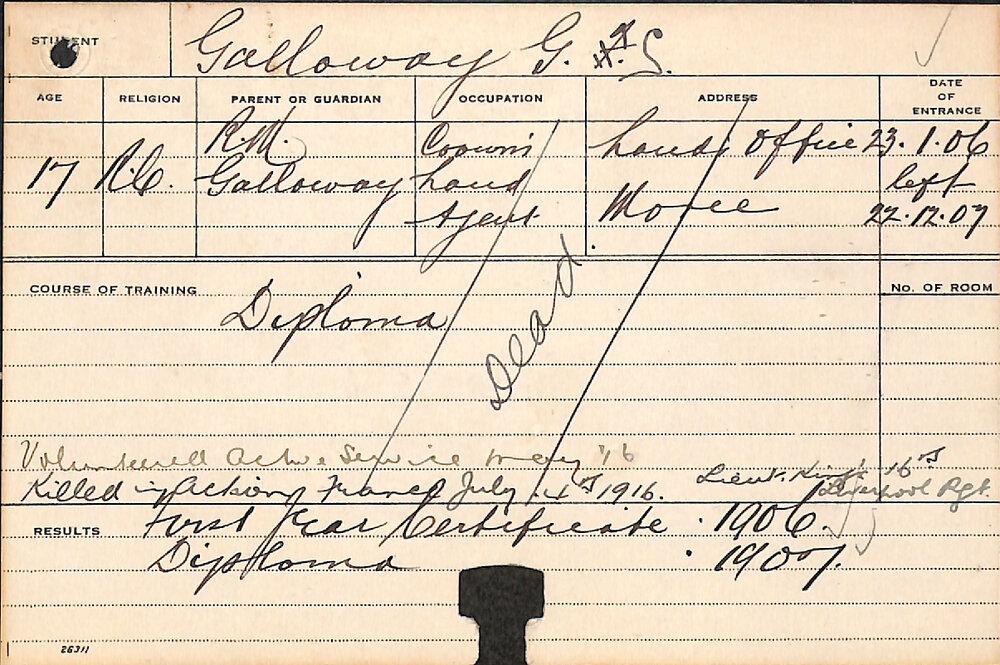 STUDENT Galloway G. S.
AGE RELIGION PARENT OR GUARDIAN OCCUPATION ADDRESS DATE OF ENTRANCE
R.M. Crown Lands Office 23.1.06
17 R.C. Galloway Land left
Agent Moree 22.12.07
COURSE OF TRAINING No. OF ROOM
Diploma
Dead
Volunteered Active Service May '16
Killed in Action, France July 1916. Lieut. King's 16th
Liverpool Rgt.
RESULTS First Year Certificate . 1906.
Diploma . 1907.
26311